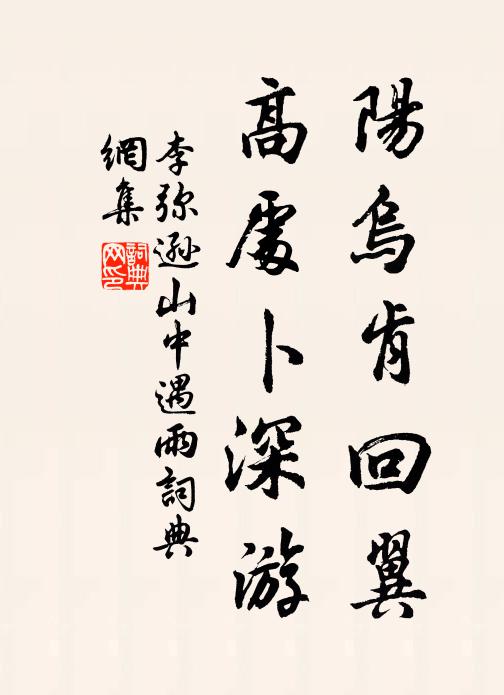 陽烏肯回翼
高處卜深游
李弥遜山中遇雨詞典
網集
詞典
网印